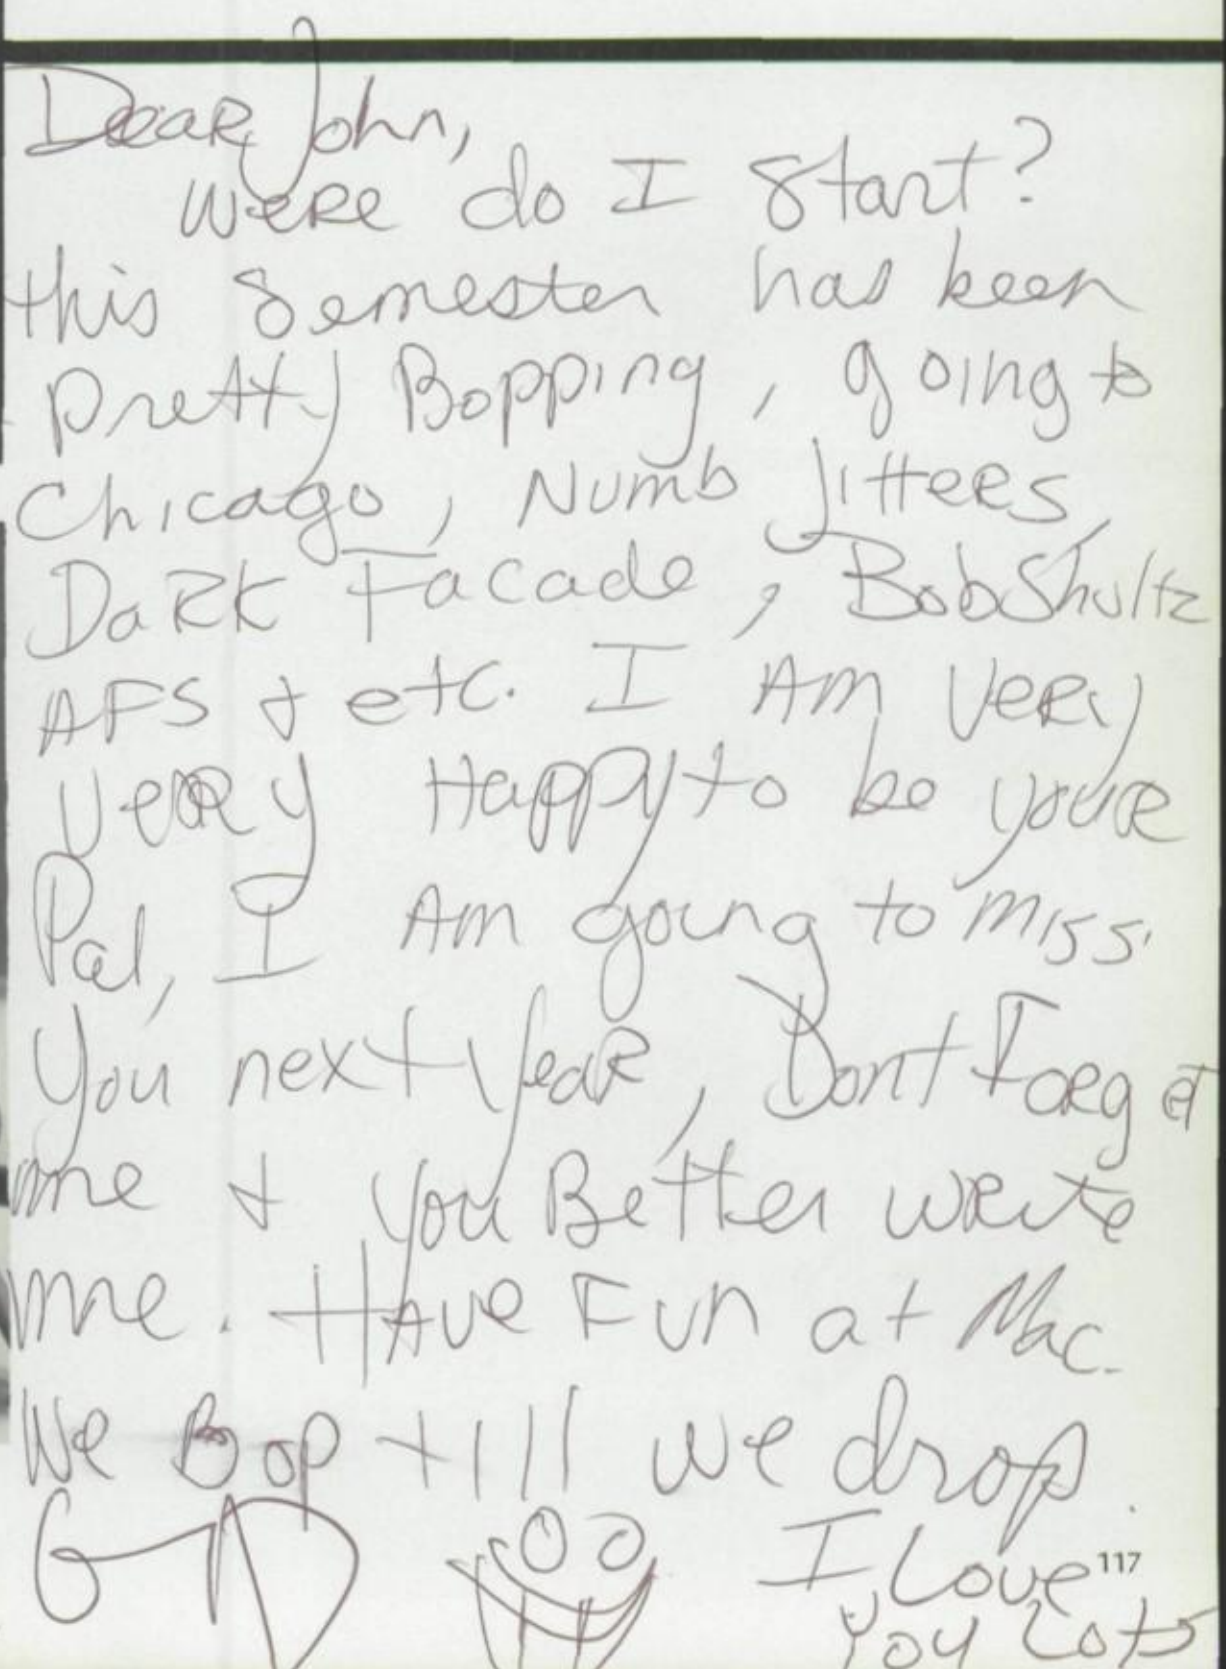 Dear John,
were do I start?
this semester has been
pretty Bopping, going to
Chicago, Numb Jitters,
Dark Facade, Bob Shultz
AFS & etc. I Am Very
very Happy to be youre
Pal, I Am going to miss
You next Year, Dont Forget
me & you Better write
me. HAVe Fun at Mac.
We Bop till we drop.
I Love
117
You Lots